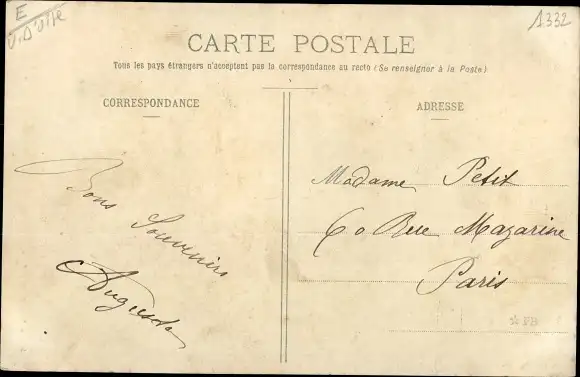 E
V. D'OISE
1332
CARTE POSTALE
Tous les pays étrangers n'acceptent pas la correspondance au recto (Se renseigner à la Poste)
CORRESPONDANCE
ADRESSE
Bons
Souvenirs
Augusta
Madame Petit
60 Rue Mazarine
Paris
FB